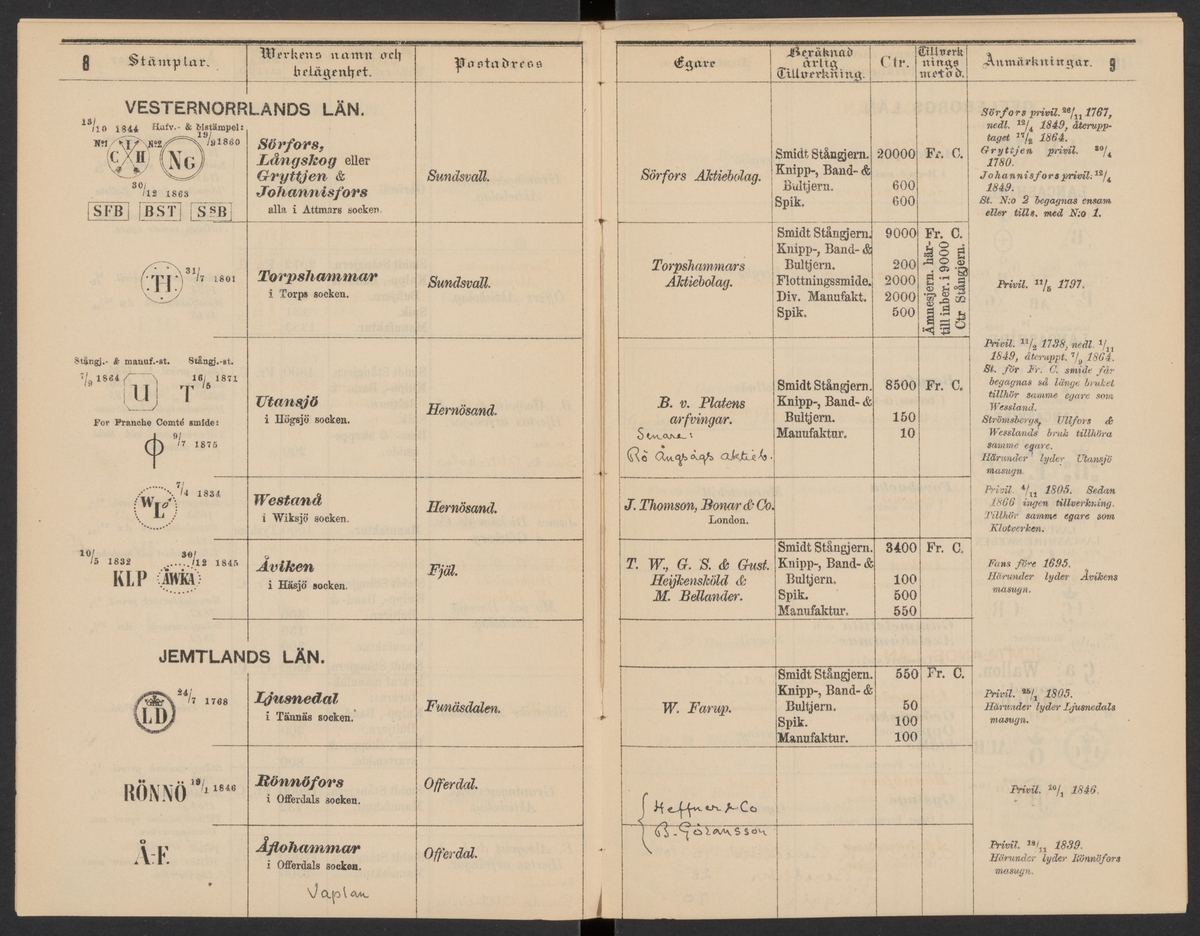 8
Stämplar.
Werkens namn och
belägenhet.
Postadress
Egare
Beräknad
årlig
Tillverkning.
Ctr.
Tillverk
nings
metod.
Anmärkningar.
9
VESTERNORRLANDS LÄN.
13/10 1844 Hufv.- & bistämpel:
№1 C I H №2 NG 19/9 1860
30/12 1863
SFB BST SSB
Sörfors,
Långskog eller
Gryttjen &
Johannisfors
alla i Attmars socken.
Sundsvall.
Sörfors Aktiebolag.
Smidt Stångjern. 20000 Fr. C.
Knipp-, Band- &
Bultjern. 600
Spik. 600
Sörfors privil. 26/11 1767,
nedl. 12/4 1849, återupp-
taget 17/2 1864.
Gryttjen privil. 20/4
1780.
Johannisfors privil. 12/4
1849.
St. N:o 2 begagnas ensam
eller tills. med N:o 1.
TH 31/7 1801
Torpshammar
i Torps socken.
Sundsvall.
Torpshammars
Aktiebolag.
Smidt Stångjern. 9000 Fr. C.
Knipp-, Band- &
Bultjern. 200
Flottningssmide. 2000
Div. Manufakt. 2000
Spik. 500
Ämnesjern. här-
till inber. i 9000
Ctr Stångjern.
Privil. 11/5 1797.
Stångj.- & manuf.-st. Stångj.-st.
7/9 1864 U T 16/5 1871
For Franche Comté smide:
9/7 1875
Utansjö
i Högsjö socken.
Hernösand.
B. v. Platens
arfvingar.
Senare:
Rö Ångsågs aktieb.
Smidt Stångjern. 8500 Fr. C.
Knipp-, Band- &
Bultjern. 150
Manufaktur. 10
Privil. 11/2 1738, nedl. 1/11
1849, återuppt. 7/9 1864.
St. för Fr. C. smide får
begagnas så länge bruket
tillhör samme egare som
Wessland.
Strömsbergs, Ullfors &
Wesslands bruk tillhöra
samme egare.
Härunder lyder Utansjö
masugn.
WL 7/4 1834
Westanå
i Wiksjö socken.
Hernösand.
J. Thomson, Bonar & Co.
London.
Privil. 4/11 1805. Sedan
1866 ingen tillverkning.
Tillhör samme egare som
Klotverken.
10/5 1832 KLP ÅWKA 30/12 1845
Åviken
i Häsjö socken.
Fjäl.
T. W., G. S. & Gust.
Heijkensköld &
M. Bellander.
Smidt Stångjern. 3400 Fr. C.
Knipp-, Band- &
Bultjern. 100
Spik. 500
Manufaktur. 550
Fans före 1695.
Härunder lyder Åvikens
masugn.
JEMTLANDS LÄN.
LD 24/7 1768
Ljusnedal
i Tännäs socken.
Funäsdalen.
W. Farup.
Smidt Stångjern. 550 Fr. C.
Knipp-, Band- &
Bultjern. 50
Spik. 100
Manufaktur. 100
Privil. 25/1 1805.
Härunder lyder Ljusnedals
masugn.
RÖNNÖ 19/1 1846
Rönnöfors
i Offerdals socken.
Offerdal.
Heffner & Co
B. Göransson
Privil. 10/1 1846.
Å-F.
Åflohammar
i Offerdals socken.
Offerdal.
Privil. 28/11 1839.
Härunder lyder Rönnöfors
masugn.
Vaplan